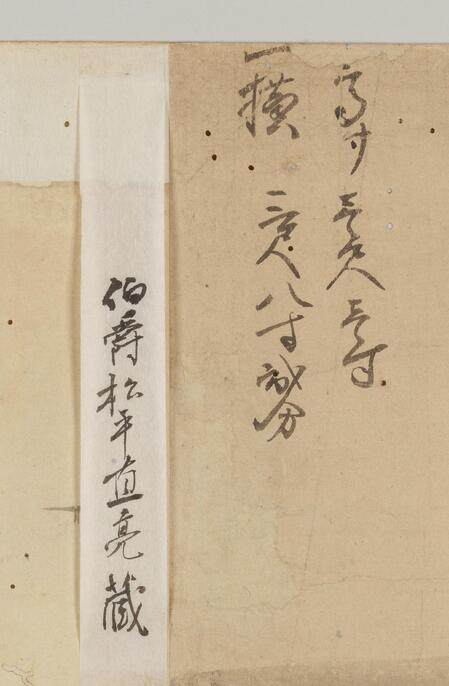 高サ 壱尺壱寸
一横 三尺八寸弐分
伯爵松平直亮蔵